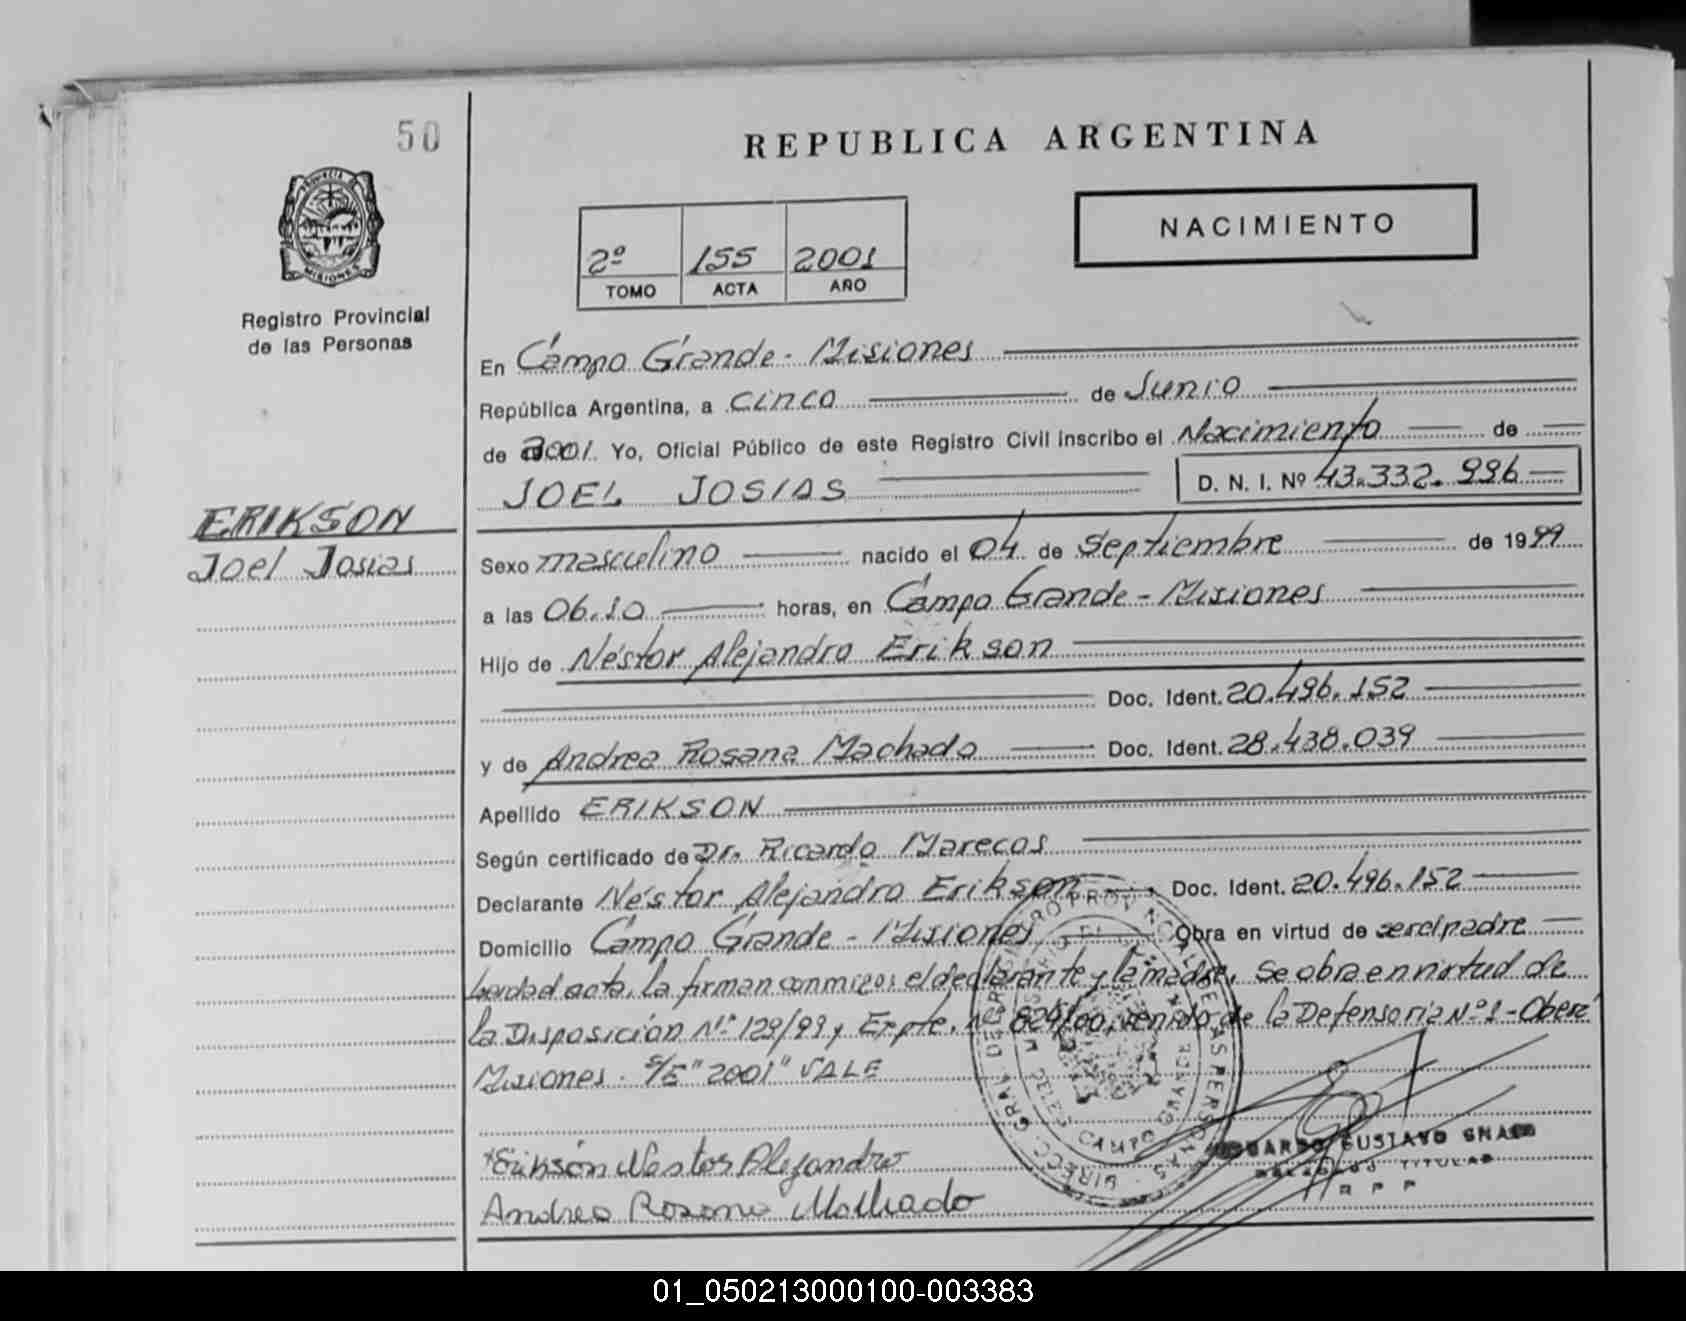 50
REPUBLICA ARGENTINA
PROVINCIA DE MISIONES
Registro Provincial
de las Personas
2º 155 2001
TOMO ACTA AÑO
NACIMIENTO
En Campo Grande - Misiones
República Argentina, a cinco de Junio
de 2001. Yo, Oficial Público de este Registro Civil inscribo el Nacimiento de
JOEL JOSIAS D. N. I. Nº 43.332.996
ERIKSON
Joel Josias
Sexo masculino nacido el 04 de Septiembre de 1999
a las 06.10 horas, en Campo Grande - Misiones
Hijo de Néstor Alejandro Erikson
Doc. Ident. 20.496.152
y de Andrea Rosana Machado Doc. Ident. 28.438.039
Apellido ERIKSON
Según certificado de Dr. Ricardo Marecos
Declarante Néstor Alejandro Erikson Doc. Ident. 20.496.152
Domicilio Campo Grande - Misiones Obra en virtud de ser el padre
acta, la firman conmigo: el declarante y la madre. Se obra en virtud de
la Disposición Nº 129/99 y Expte. Nº 824/00, venido de la Defensoría Nº 1 - Oberá
Misiones. S/E "2001" VALE
Erikson Nestor Alejandro
Andrea Rosana Machado
GUSTAVO
TITULAR
R P P
CAMPO GRANDE
01_050213000100-003383